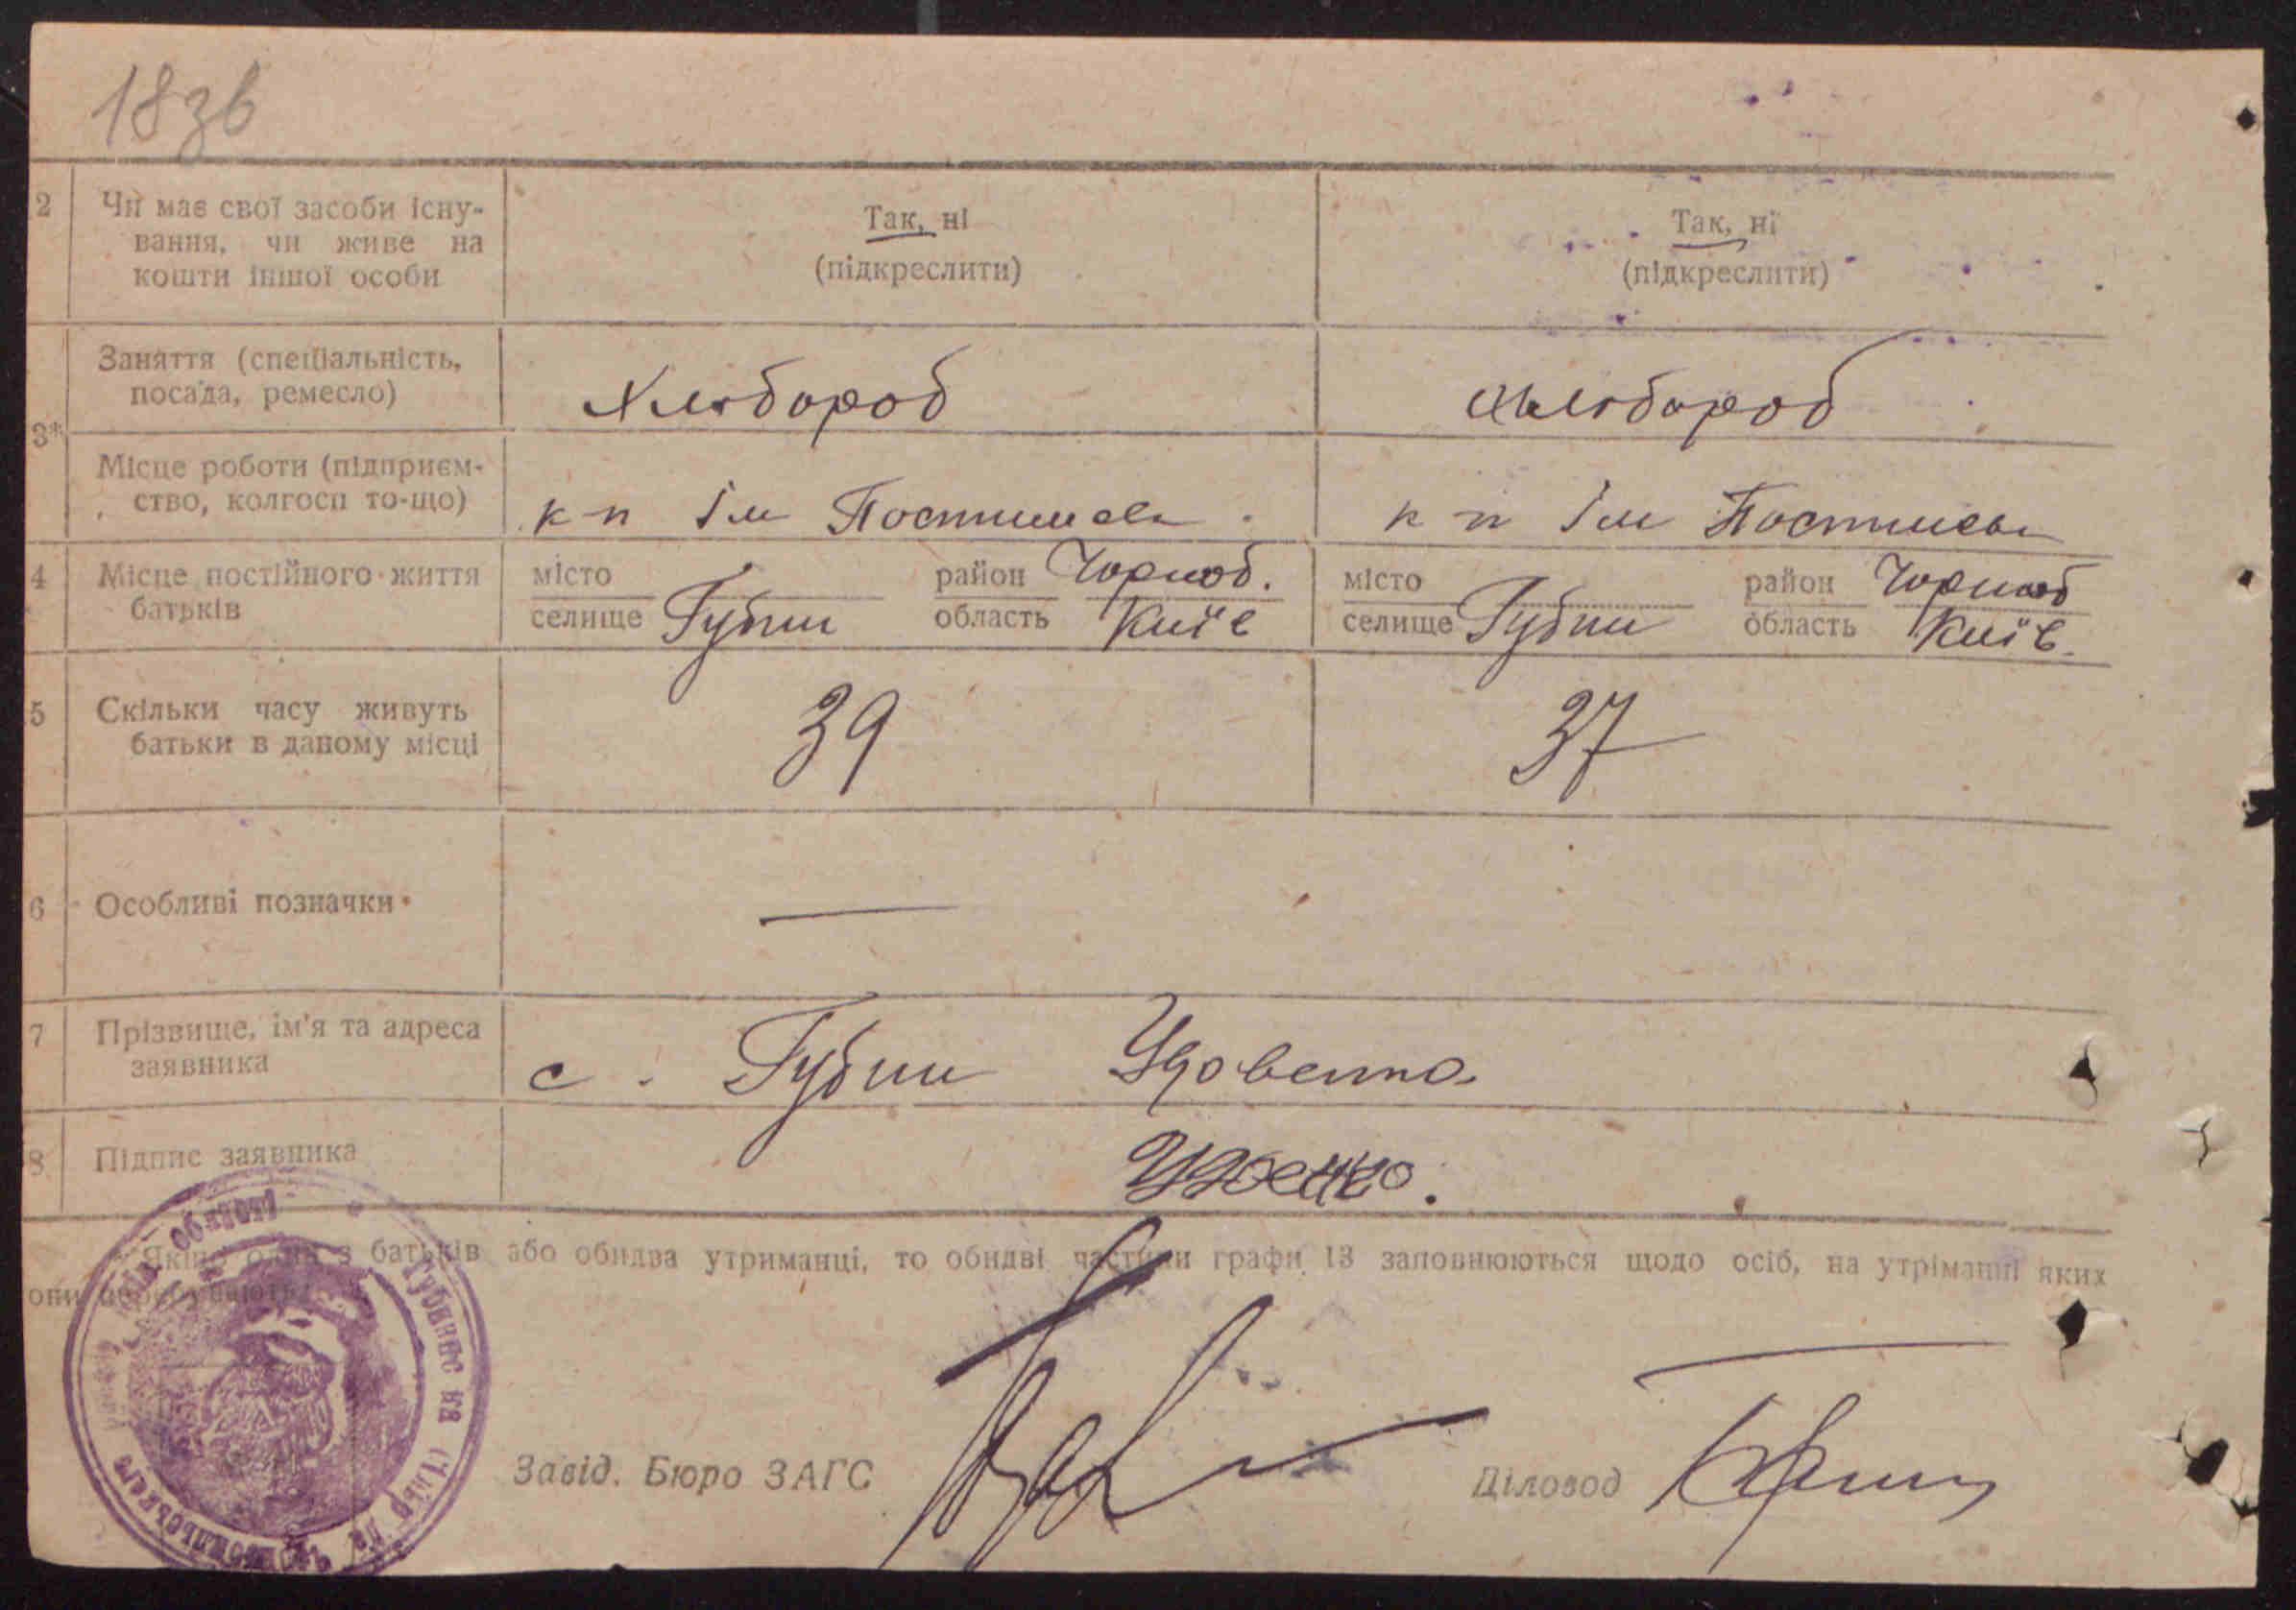 18зв
2 Чи має свої засоби існу- Так, ні Так, ні
вання, чи живе на (підкреслити) (підкреслити)
кошти іншої особи
3* Заняття (спеціальність, Хлібороб Хлібороб
посада, ремесло)
Місце роботи (підприєм- к-п Ім Постишева к-п Ім Постишева
ство, колгосп то-що)
4 Місце постійного життя місто район Чорноб. місто район Чорноб
батьків селище Губин область Київ селище Губин область Київ
5 Скільки часу живуть 39 37
батьки в даному місці
6 Особливі позначки —
7 Прізвище, ім'я та адреса с. Губин Удовенко
заявника
8 Підпис заявника
Якщо один з батьків або обидва утриманці, то обидві частини графи 13 заповнюються щодо осіб, на утріманні яких
они перебувають.
Завід. Бюро ЗАГС Діловод
області Губинс ка